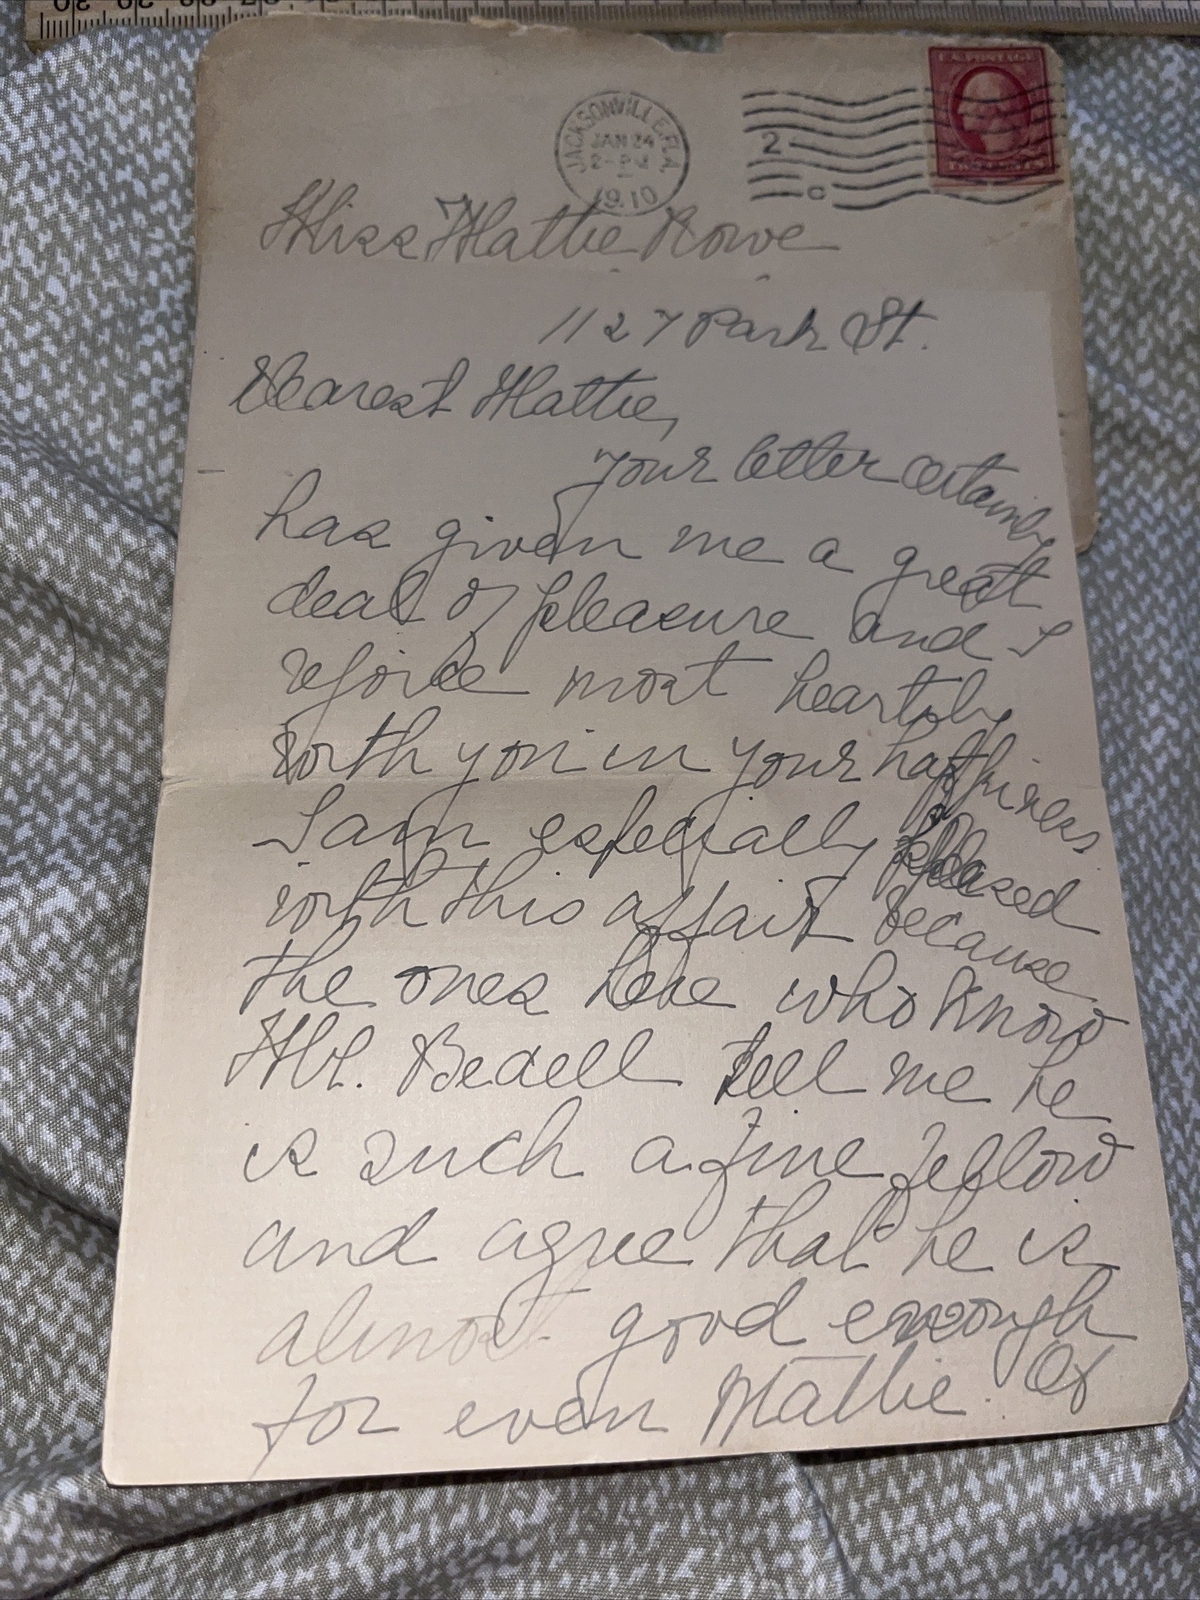 JACKSONVILLE, FLA.
JAN 24
2-PM
1910
2
C
U.S. POSTAGE
Miss Mattie Rowe
1127 Park St.
Dearest Mattie,
Your letter certainly
has given me a great
deal of pleasure and I
rejoice most heartily
with you in your happiness
I am especially pleased
with this affair because
the ones here who know
Mr. Bedell tell me he
is such a fine fellow
and agree that he is
almost good enough
for even Mattie. Of